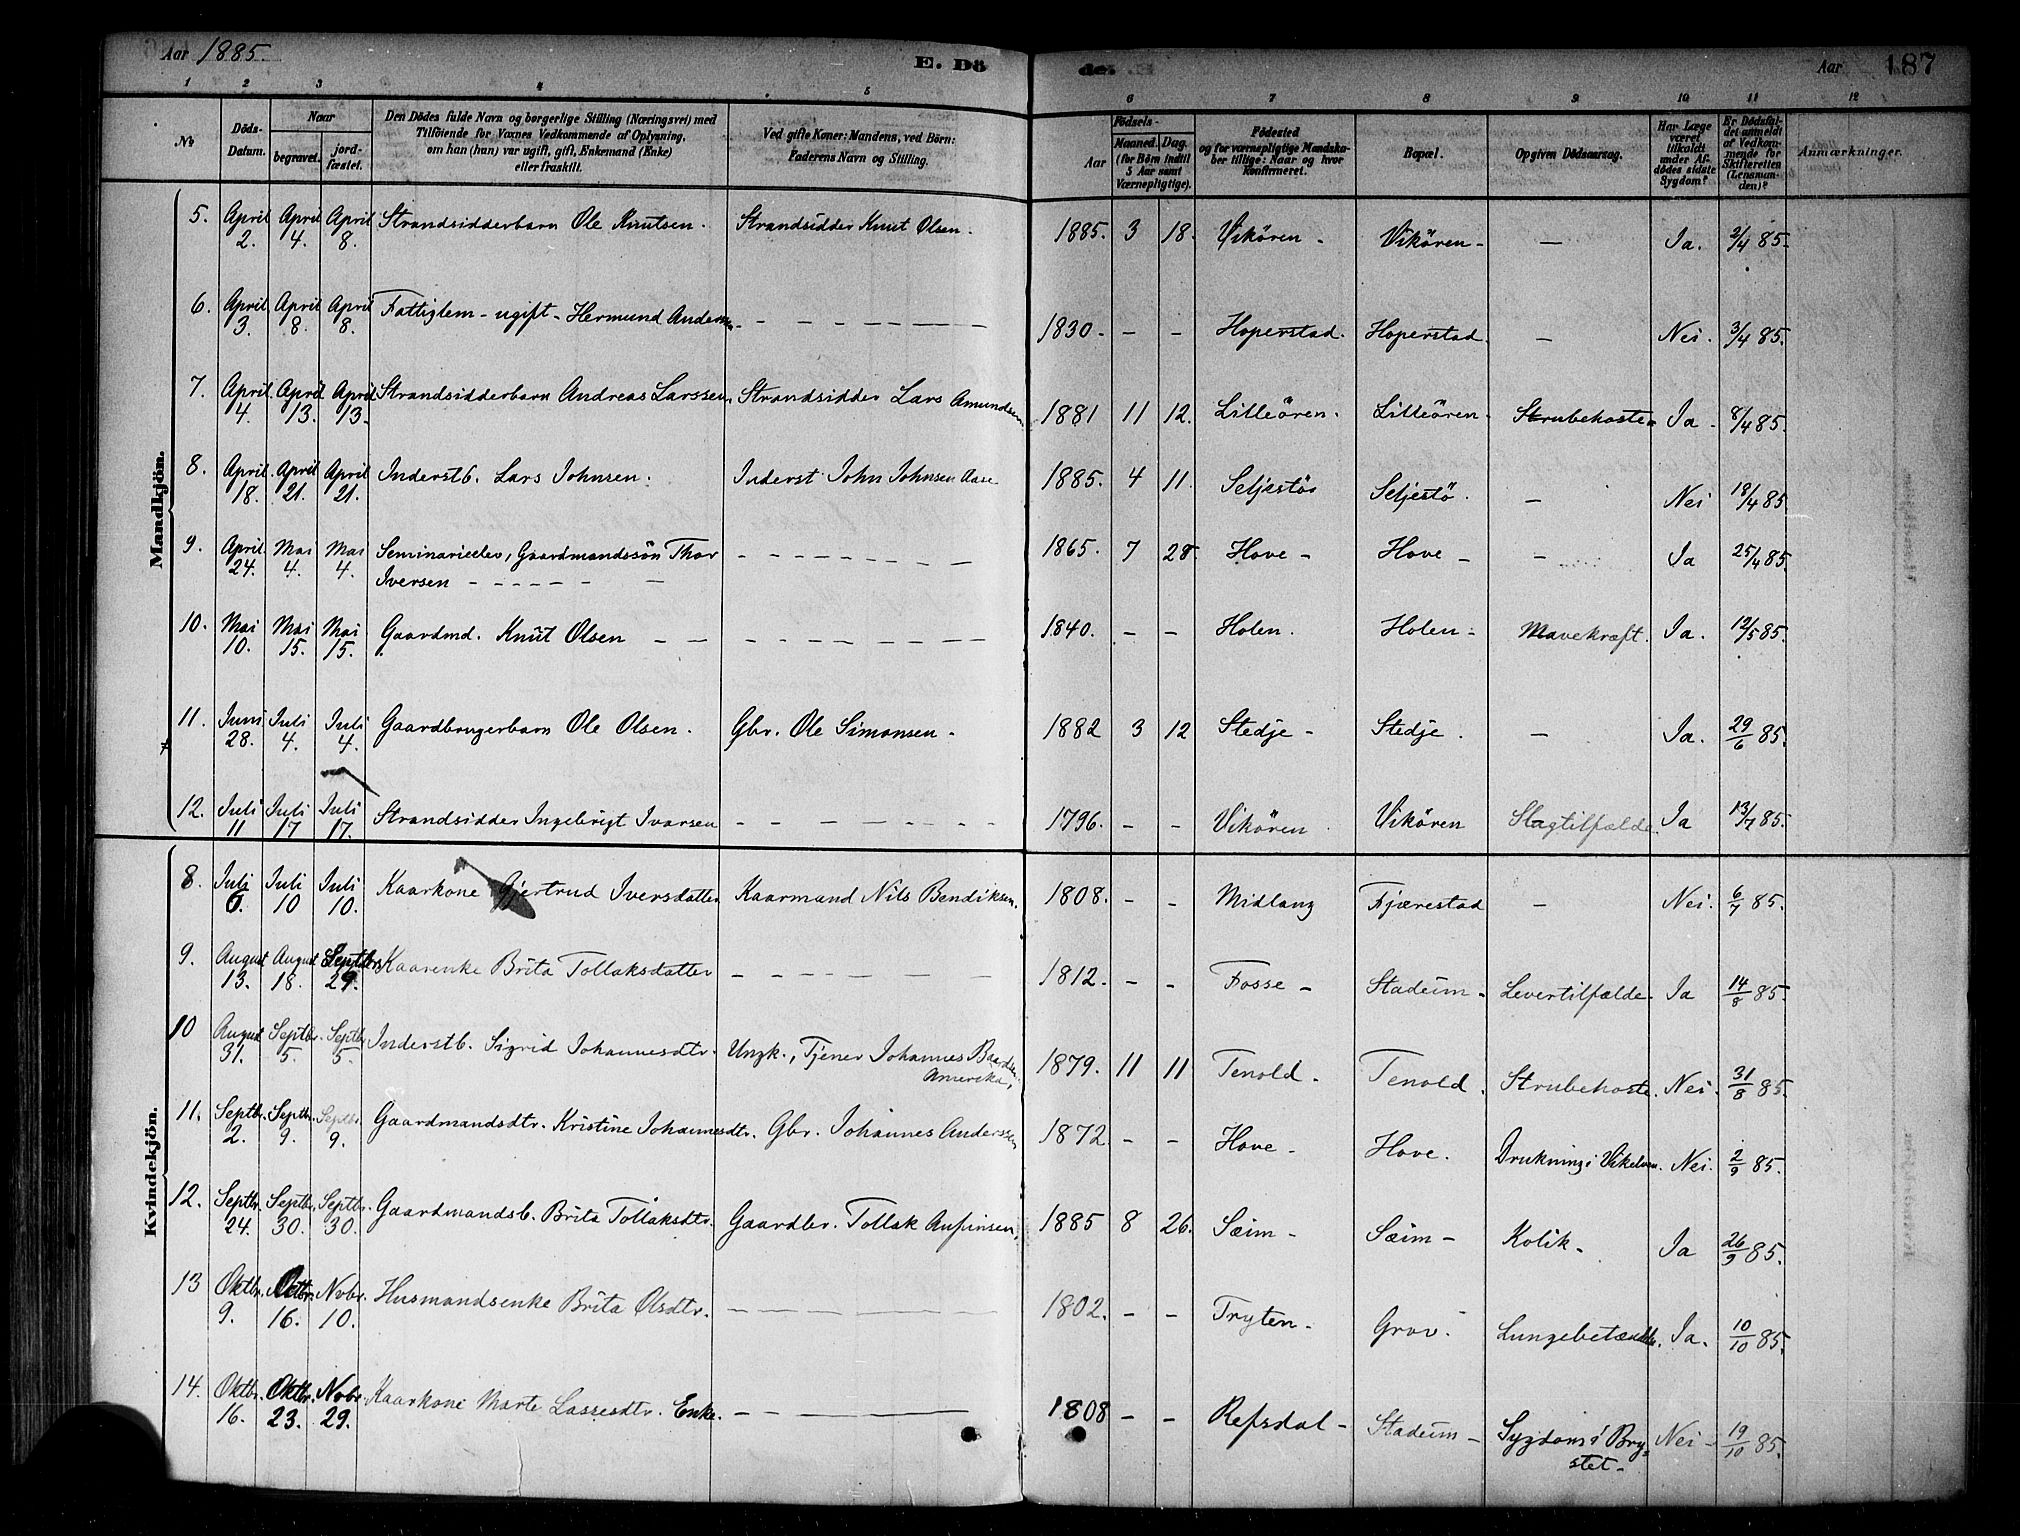 Aar 1885. E. Dö de. Aar 187
1 2 3 4 5 6 7 8 9 10 11 12
No Döds-Datum. Naar begravet. jord-fæstet. Den Dödes fulde Navn og borgerlige Stilling (Næringsvei) med Tilföiende for Voxnes Vedkommende af Oplysning, om han (hun) var ugift, gift, Enkemand (Enke) eller fraskilt. Ved gifte Koner: Mandens, ved Börn: Faderens Navn og Stilling. Födsels- Aar Maaned. Dag. (for Börn indtil 5 Aar samt Værnepligtige). Födested og for værnepligtige Mandskaber tillige: Naar og hvor konfirmeret. Bopæl. Opgiven Dödsaarsag. Har Læge været tilkaldt under Afdödes sidste Sygdom? Er Dödsfaldet anmeldt af Vedkommende for Skifteretten (Lensmanden)? Anmærkninger.
Mandkjön.
5. April 2. April 4. April 8. Strandsidderbarn Ole Knutsen. Strandsidder Knut Olsen. 1885. 3 18. Vikören - Vikören - — Ja. 2/4 85.
6. April 3. April 8. April 8. Fattiglem - ugift - Hermund Andersen - — — — 1830 - - - Hoperstad. Hoperstad. — Nei. 3/4 85.
7. April 4. April 13. April 13. Strandsidderbarn Andreas Larssen. Strandsidder Lars Amundsen 1881 11 12. Lilleören. Lilleören. Strubehoste Ja - 8/4 85.
8. April 18. April 21. April 21. Inderstb. Lars Johnsen. Inderst John Johnsen Aase 1885. 4 11. Seljestö Seljestö. — Nei 18/4 85.
9. April 24. Mai 4. Mai 4. Seminarieelev, Gaardmandssön Thor - — — —
Iversen - - - - - 1865. 7 28. Hove - Hove - — Ja 25/4 85.
10. Mai 10. Mai 15. Mai 15. Gaardmd. Knut Olsen — — — 1840. - - Holen. Holen - Mavekræft. Ja. 12/5 85.
11. Juni 28. Juli 4. Juli 4. Gaardbrugerbarn Ole Olsen. Gbr. Ole Simonsen - 1882 3 12 Stedje - Stedje. — Ja. 29/6 85.
12. Juli 11 Juli 17 Juli 17. Strandsidder Ingebrigt Ivarsen - — — — 1796. - - Vikören Vikören Slagtilfælde. Ja 13/7 85.
Kvindekjön.
8. Juli 6. Juli 10 Juli 10. Kaarkone Gjertrud Iversdatter Kaarmand Nils Bendiksen. 1808. - - Midlang Fjærestad — Nei. 6/7 85.
9. August 13. August 18. Septbr. 29. Kaarenke Brita Tollaksdatter — — — 1812. - - Fosse - Stadeim - Levertilfælde. Ja 14/8 85.
10 August 31. Septbr. 5. Septbr. 5. Inderstb. Sigrid Johannesdtr. Ungk., Tjener Johannes Baardsen.
Amerika, 1879. 11 11 Tenold - Tenold. Strubehoste. Nei. 31/8 85.
11. Septbr. 2. Septbr. 9. Septbr. 9. Gaardmandsdtr. Kristine Johannesdtr. Gbr. Johannes Anderssen 1872 - - Hove - Hove. Drukning i Vikelven. Nei. 2/9 85.
12. Septbr. 24. Septbr. 30. Septbr. 30. Gaardmandsb. Brita Tollaksdtr. Gaardbr. Tollak Anfinsen, 1885 8 26. Sæim - Sæim - Kolik - Ja 26/9 85.
13 Oktbr. 9. Oktbr. 16. Nvbr. 10. Husmandsenke Brita Olsdtr. — — — 1802. - - Tryten - Grov. Lungebetændelse. Ja. 10/10 85.
14. Oktbr. 16. Oktbr. 23. Novbr. 29. Kaarkone Marte Lassesdtr. Enke. — — 1808 - - Refsdal - Stadeim - Sygdom i Bry-
stet - Nei - 19/10 85.